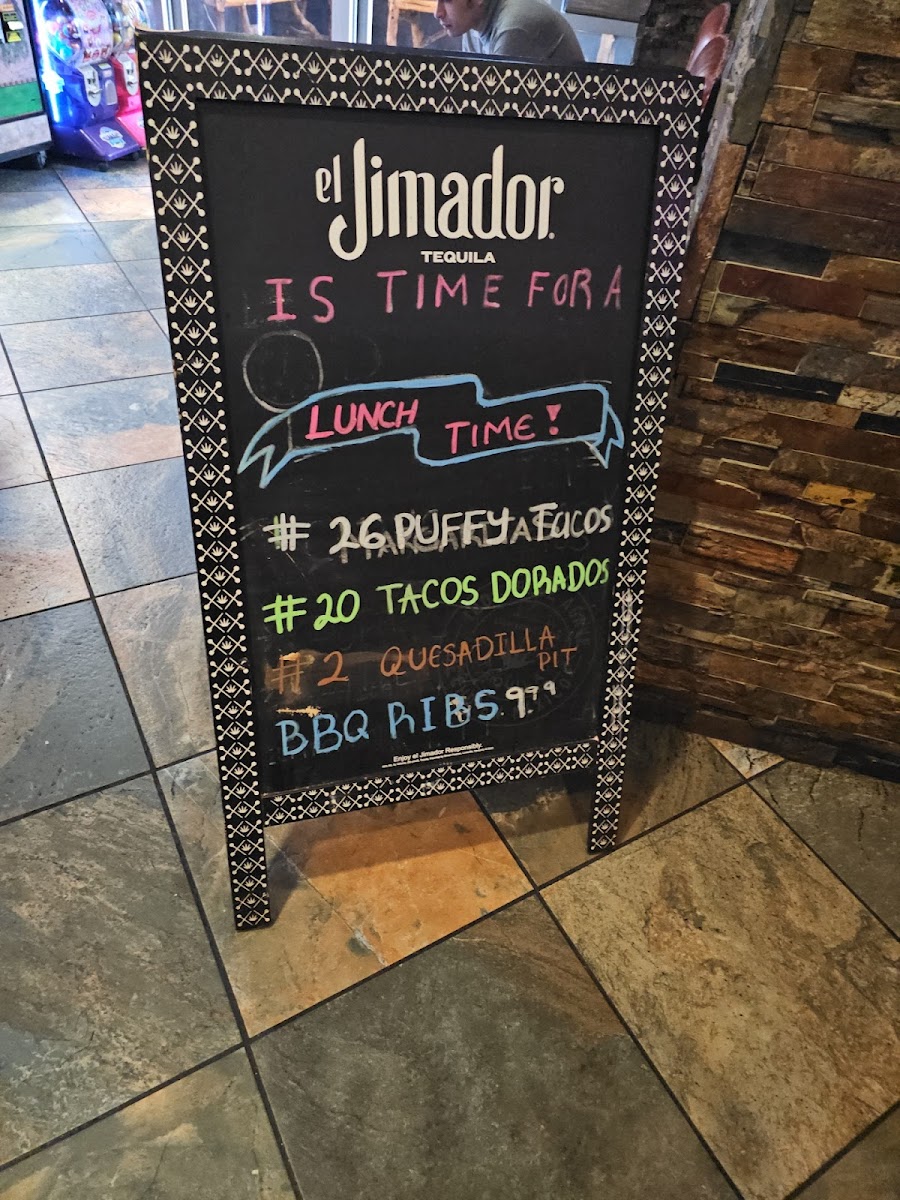 el Jimador
TEQUILA
IS TIME FOR A
LUNCH TIME!
# 26 PUFFY TACOS
#20 TACOS DORADOS
#2 QUESADILLA
PIT
BBQ RIBS. 9.99
Enjoy el Jimador Responsibly.